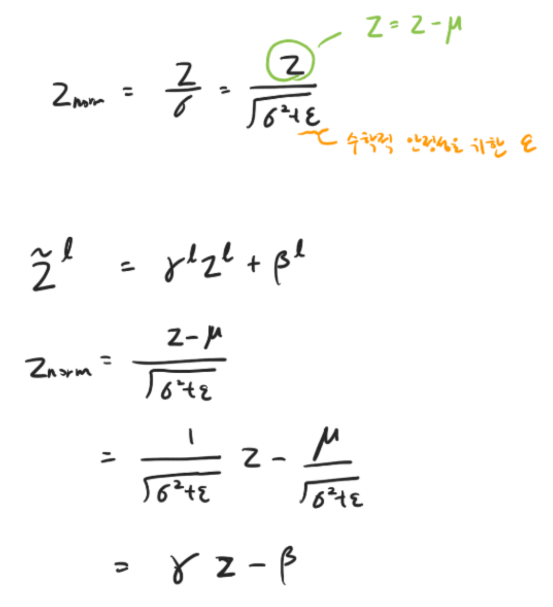 z = z - μ
z_norm = z/σ = z/√(σ²+ε)
수학적 안정성을 위한 ε
z̃^l = γ^l z^l + β^l
z_norm = (z-μ)/√(σ²+ε)
= 1/√(σ²+ε) z - μ/√(σ²+ε)
= γ z - β